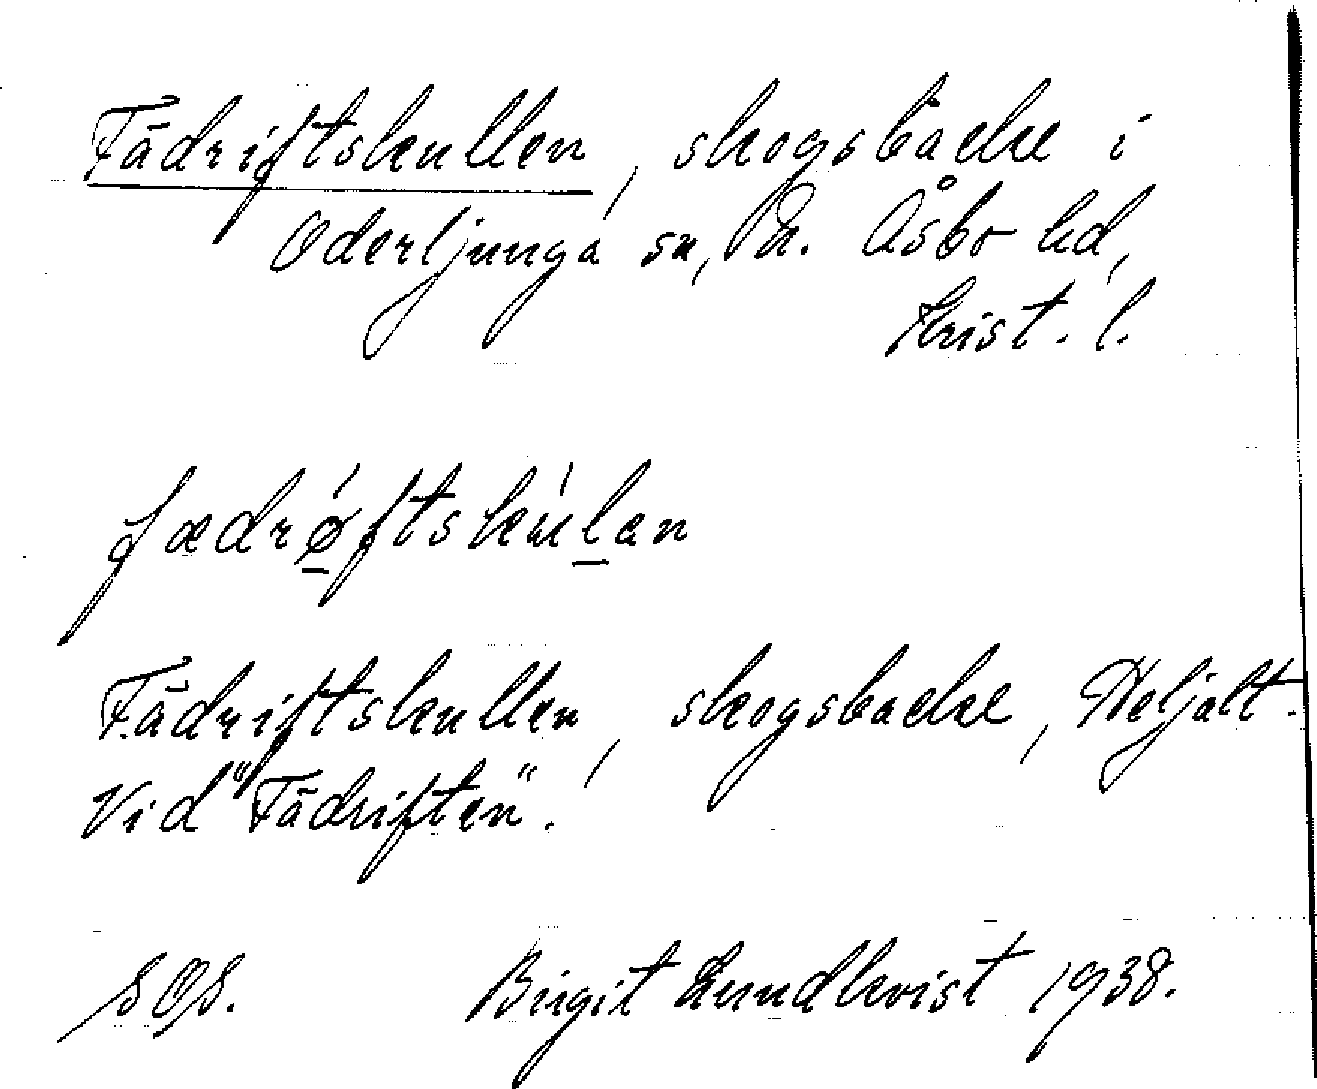 Fädriftskullen, skogsbacke i
Oderljunga sn, N. Åsbo hd,
Krist. l.
fædrǿftskúlan
Fädriftskullen, skogsbacke,
Vid "Fädriften".
Birgit Lundkvist 1938.